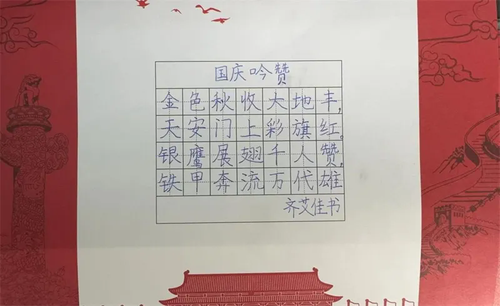 国庆吟赞
金色秋收大地丰，
天安门上彩旗红。
银鹰展翅千人赞，
铁甲奔流万代雄
齐艾佳书